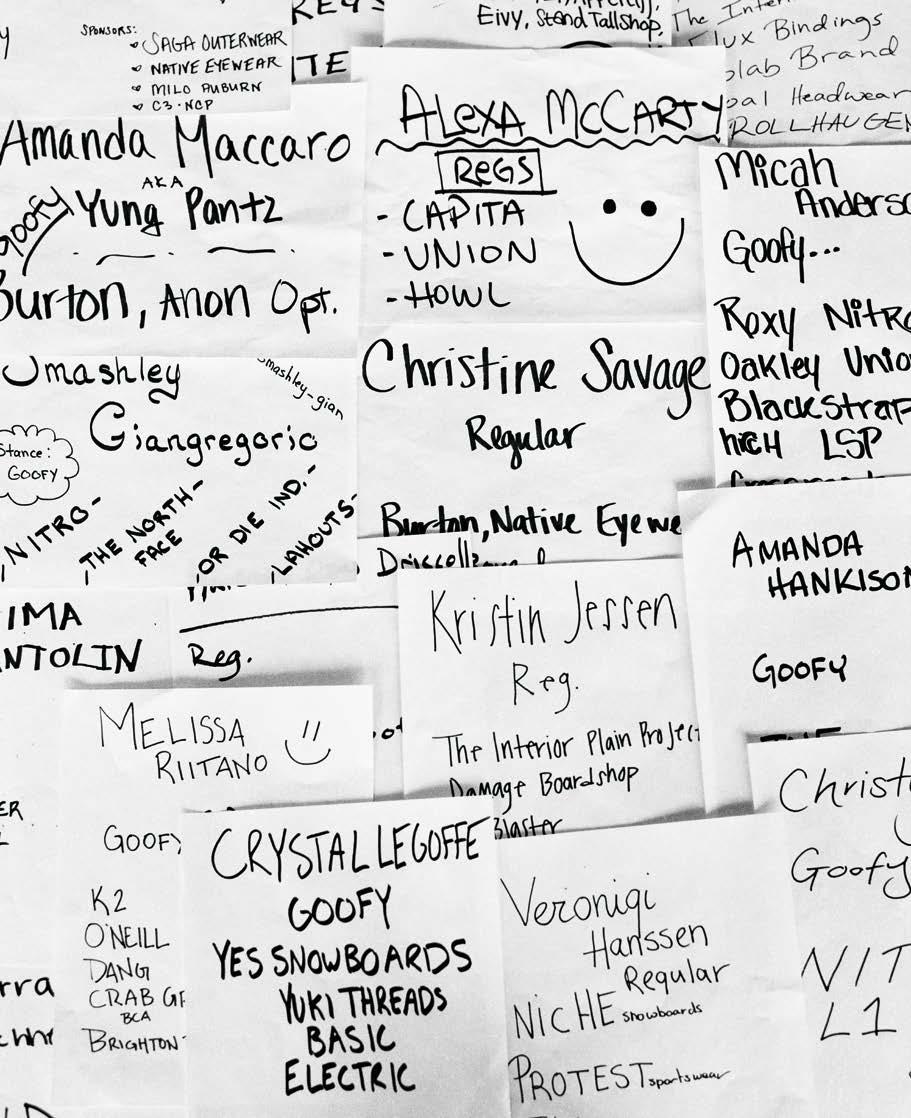 SPONSORS:
SAGA OUTERWEAR
NATIVE EYEWEAR
MILO AUBURN
C3 · NCP
Eivy, Stend Tallshop,
The
Flux Bindings
Brand
Headwear
ROLLHAUGEN
Amanda Maccaro
AKA
Yung Pantz
Goofy
Burton, Anon Opt.
ALEXA McCARTY
REGS
- CAPITA
- UNION
- HOWL
Micah
Goofy...
Roxy Nitro
Oakley Union
LSP
Smashley
Giangregorio
smashley-gian
Stance:
GOOFY
NITRO-
THE NORTH-
FACE
OR DIE IND.-
LAHOUTS-
Christine Savage
Regular
Burton, Native Eyewe
AMANDA
HANKISON
GOOFY
IMA
NTOLIN
Reg.
Kristin Jessen
Reg.
The Interior Plain Project
Damage Boardshop
Blaster
MELISSA
RIITANO
GOOFY
K2
O'NEILL
DANG
CRAB GR
BCA
BRIGHTON
CRYSTAL LEGOFFE
GOOFY
YES SNOWBOARDS
YUKI THREADS
BASIC
ELECTRIC
Veroniqi
Hanssen
Regular
NICHE snowboards
PROTEST sportswear
Christ
Goofy
NIT
L1